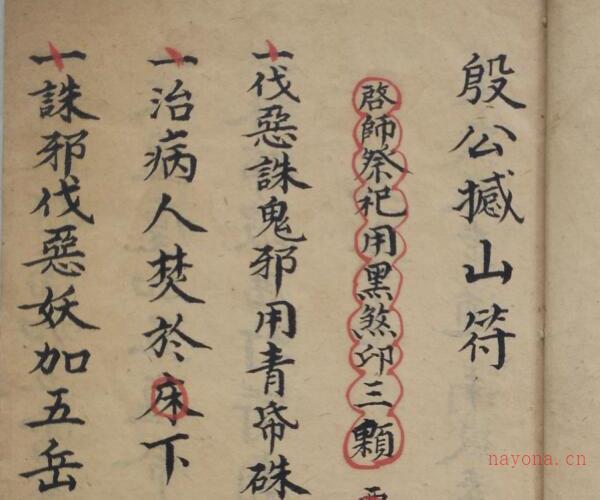 殷公撼山符
啓師祭祀用黑煞印三顆
一伐惡誅鬼邪用青帋硃
一治病人焚於床下
一誅邪伐惡妖加五岳
nayona.cn